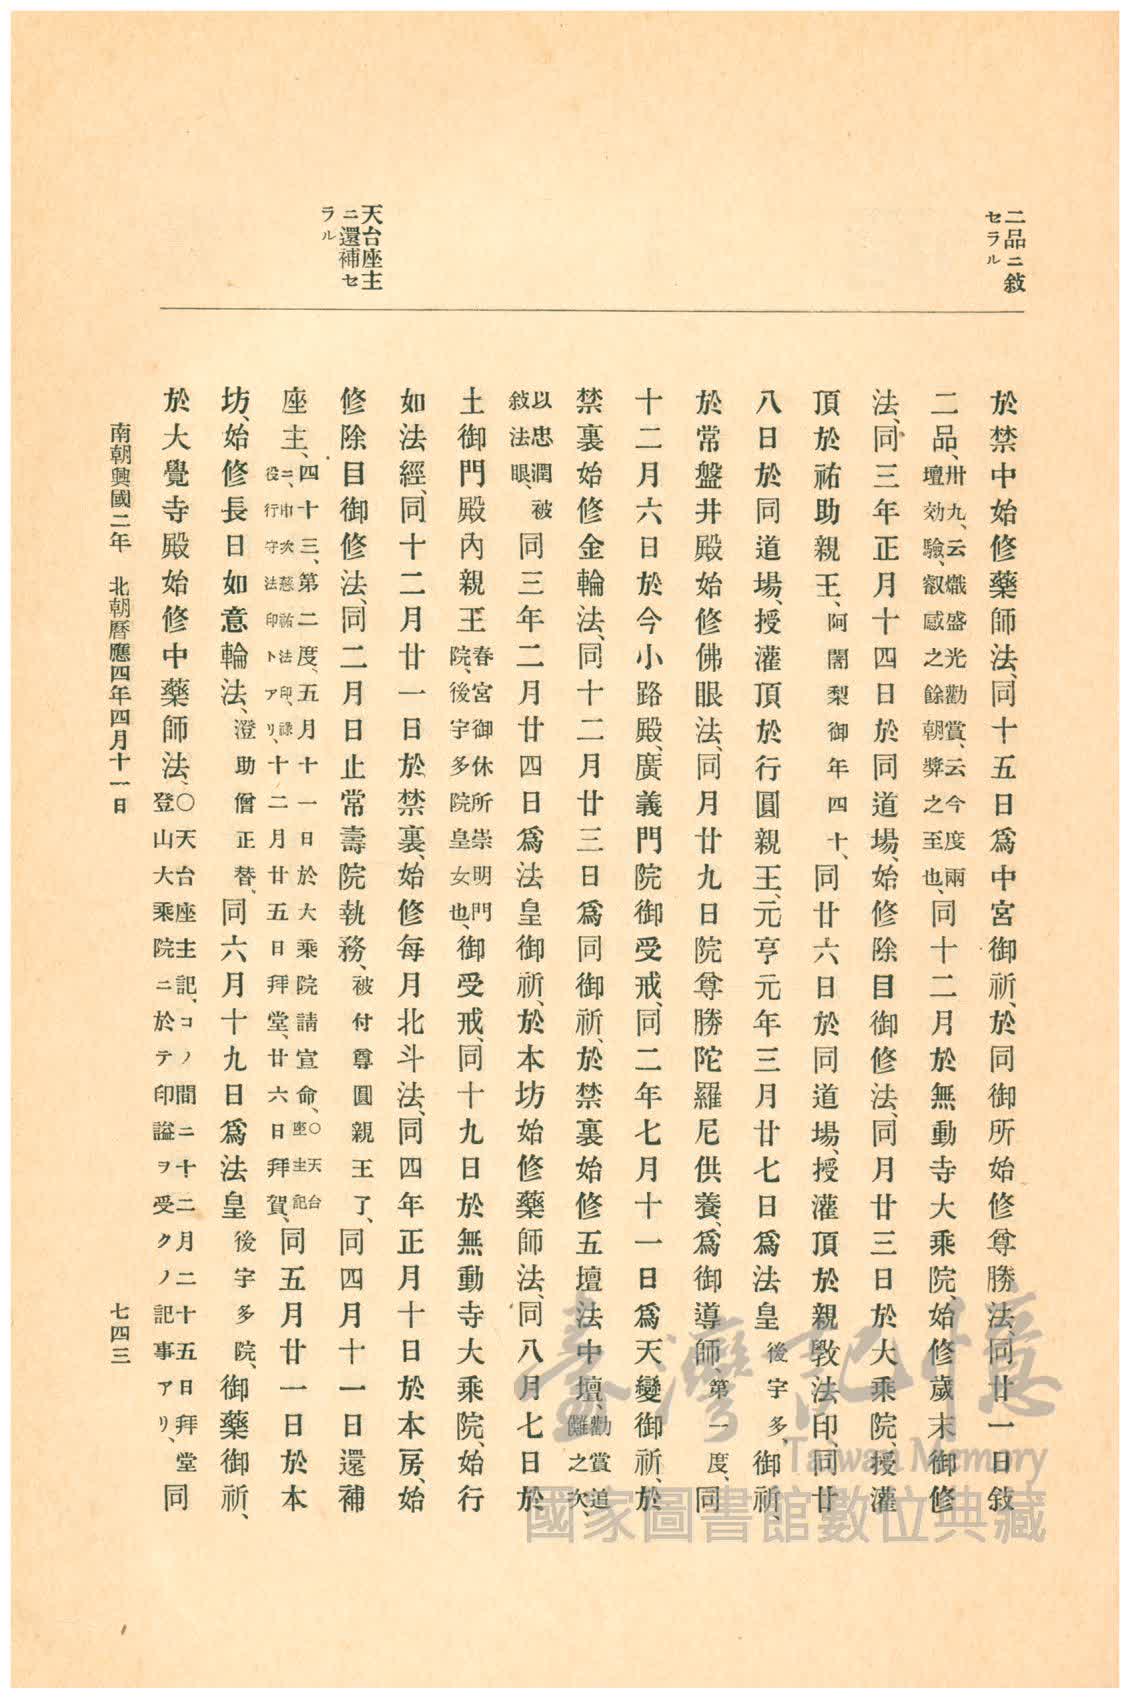 二品ニ敍
セラル
天台座主
ニ還補セ
ラル
於禁中始修藥師法、同十五日爲中宮御祈、於同御所始修尊勝法、同廿一日敍
二品、卅九、云熾盛光勸賞、云今度兩壇効驗、叡感之餘朝奬之至也、同十二月於無動寺大乘院、始修歲末御修
法、同三年正月十四日於同道場、始修除目御修法、同月廿三日於大乘院、授灌
頂於祐助親王、阿闍梨御年四十、同廿六日於同道場、授灌頂於親敎法印、同廿
八日於同道場、授灌頂於行圓親王、元亨元年三月廿七日爲法皇後宇多、御祈、
於常盤井殿始修佛眼法、同月廿九日院尊勝陀羅尼供養、爲御導師、第一度、同
十二月六日於今小路殿、廣義門院御受戒、同二年七月十一日爲天變御祈、於
禁裏始修金輪法、同十二月廿三日爲同御祈、於禁裏始修五壇法中壇、勸賞追儺之次、
以忠潤被敍法眼、同三年二月廿四日爲法皇御祈、於本坊始修藥師法、同八月七日於
土御門殿內親王春宮御休所崇明門院、後宇多院皇女也、御受戒、同十九日於無動寺大乘院、始行
如法經、同十二月廿一日於禁裏、始修每月北斗法、同四年正月十日於本房、始
修除目御修法、同二月日止常壽院執務、被付尊圓親王了、同四月十一日還補
座主、四十三、第二度、五月十一日於大乘院請宣命、○天台座主記ニ、巾次慈祐法印、祿役行守法印トアリ、十二月廿五日拜堂、廿六日拜賀、同五月廿一日於本
坊、始修長日如意輪法、澄助僧正替、同六月十九日爲法皇後宇多院、御藥御祈、
於大覺寺殿始修中藥師法、○天台座主記、コノ間ニ十二月二十五日拜堂登山大乘院ニ於テ印謚ヲ受クノ記事アリ、同
南朝興國二年　北朝曆應四年四月十一日
七四三
臺灣記憶
Taiwan Memory
國家圖書館數位典藏